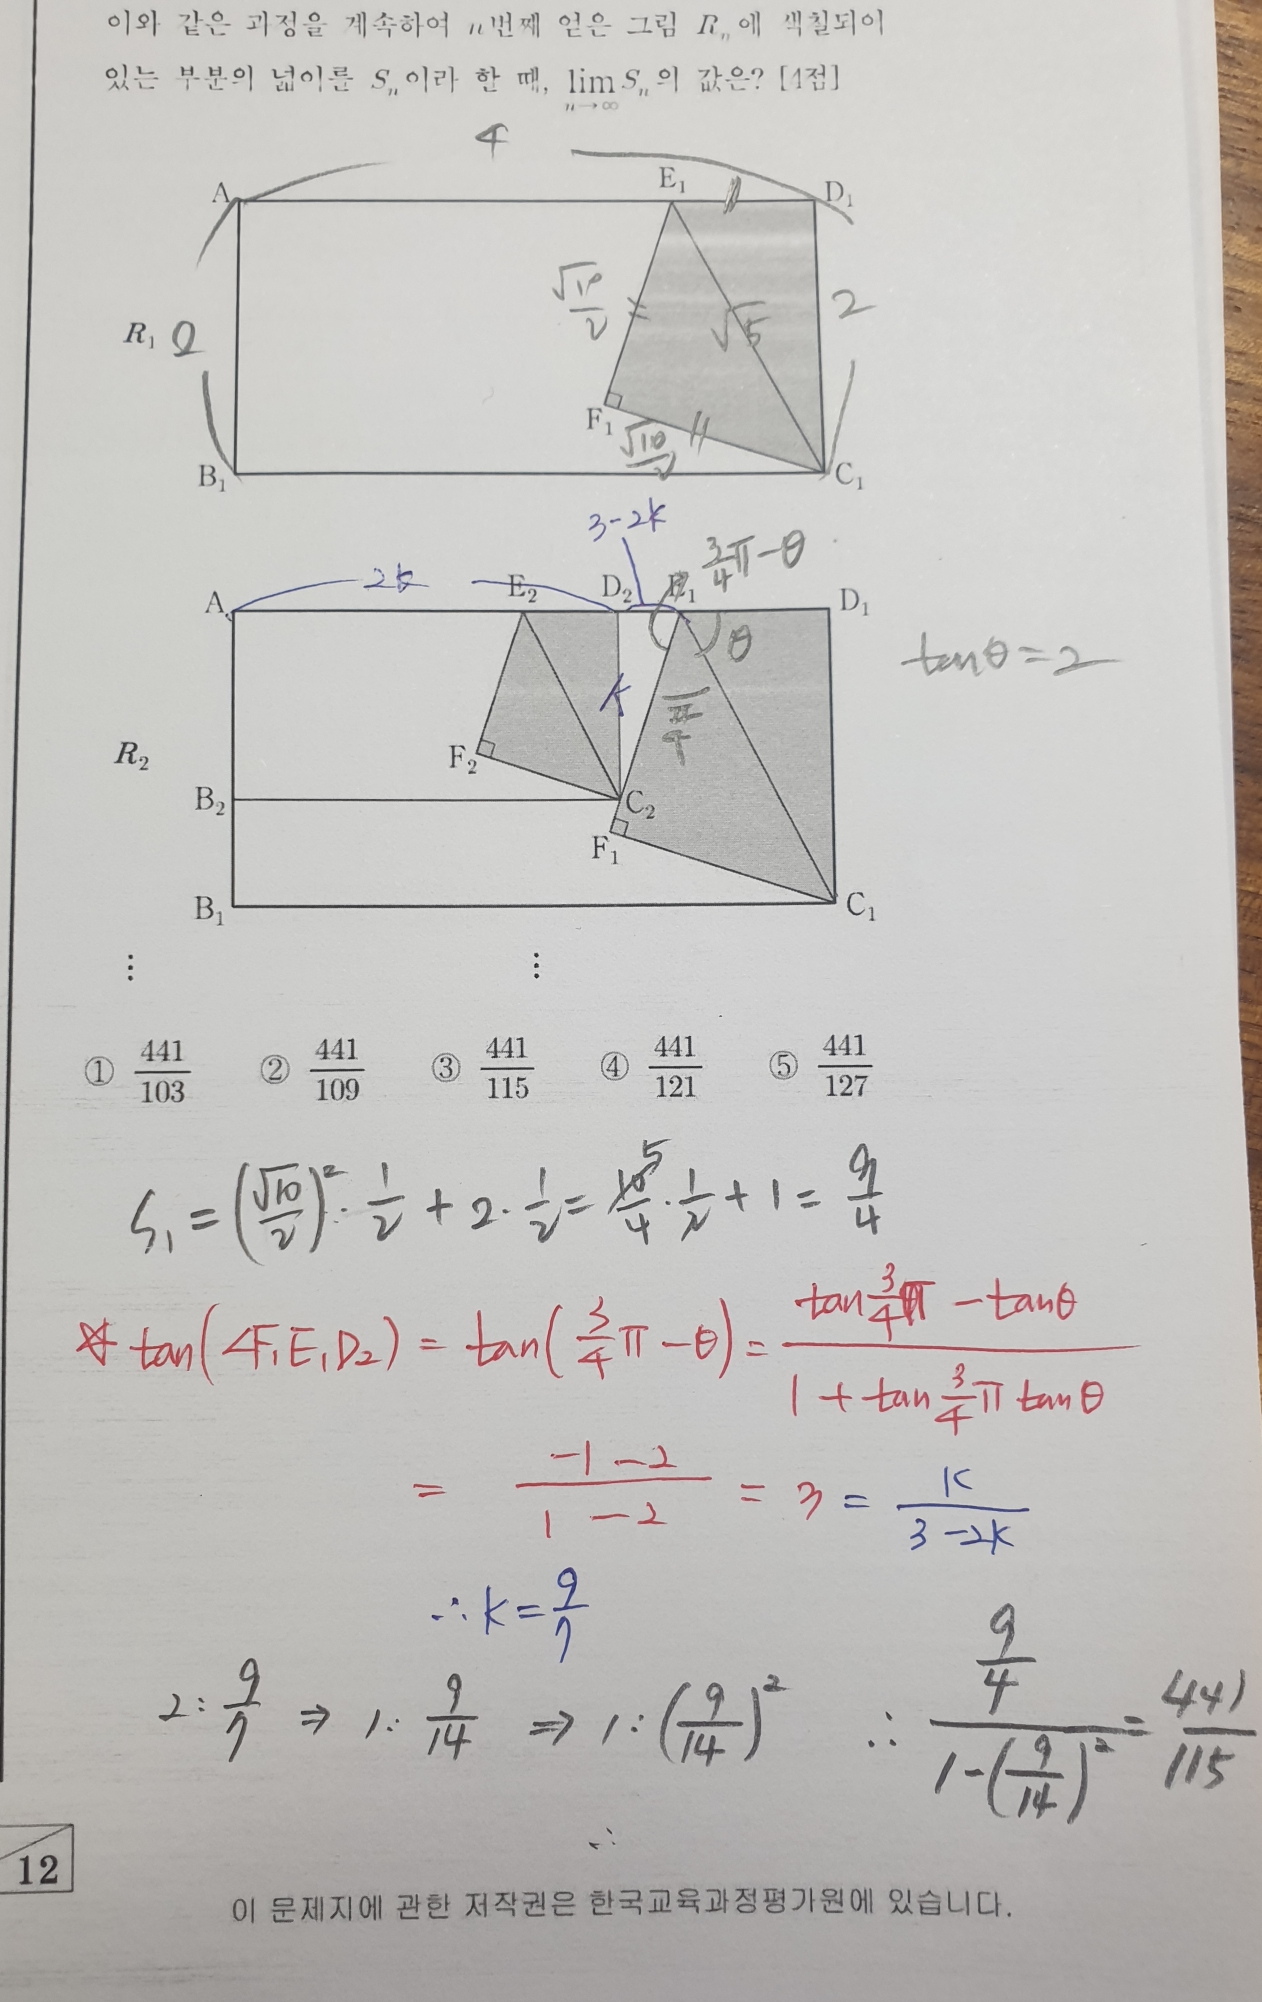 이와 같은 과정을 계속하여 n번째 얻은 그림 Rₙ에 색칠되어
있는 부분의 넓이를 Sₙ이라 할 때, lim Sₙ의 값은? [4점]
n→∞
4
A E₁ D₁
√10/2 = √5 2
R₁ 2
F₁
√10/2
B₁ C₁
3-2k
3/4π-θ
2k
A E₂ D₂ E₁ D₁
θ
tanθ=2
k π/4
R₂ F₂
B₂ C₂
F₁
B₁ C₁
⋮ ⋮
① 441/103 ② 441/109 ③ 441/115 ④ 441/121 ⑤ 441/127
S₁ = (√10/2)²·1/2 + 2·1/2 = 10/4·1/2 + 1 = 9/4
5
tan(∠F₁E₁D₂) = tan(3/4π-θ) = (tan3/4π - tanθ)/(1 + tan3/4π tanθ)
= (-1-2)/(1-2) = 3 = k/(3-2k)
∴ k = 9/7
2 : 9/7 ⇒ 1 : 9/14 ⇒ 1 : (9/14)² ∴ (9/4)/(1-(9/14)²) = 441/115
∴
12
이 문제지에 관한 저작권은 한국교육과정평가원에 있습니다.